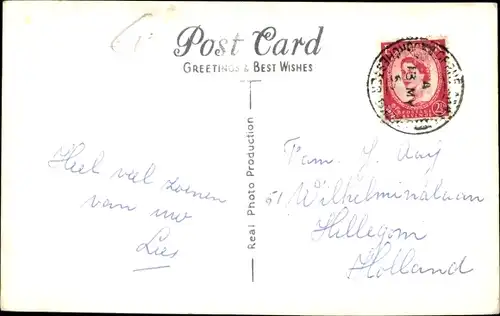 Post Card
GREETINGS & BEST WISHES
Heel veel zoenen
van uw
Lees
Real Photo Production
Fam. J. Aay
51 Wilhelminalaan
Hillegom
Holland
A
13 MY
2½
POSTAGE